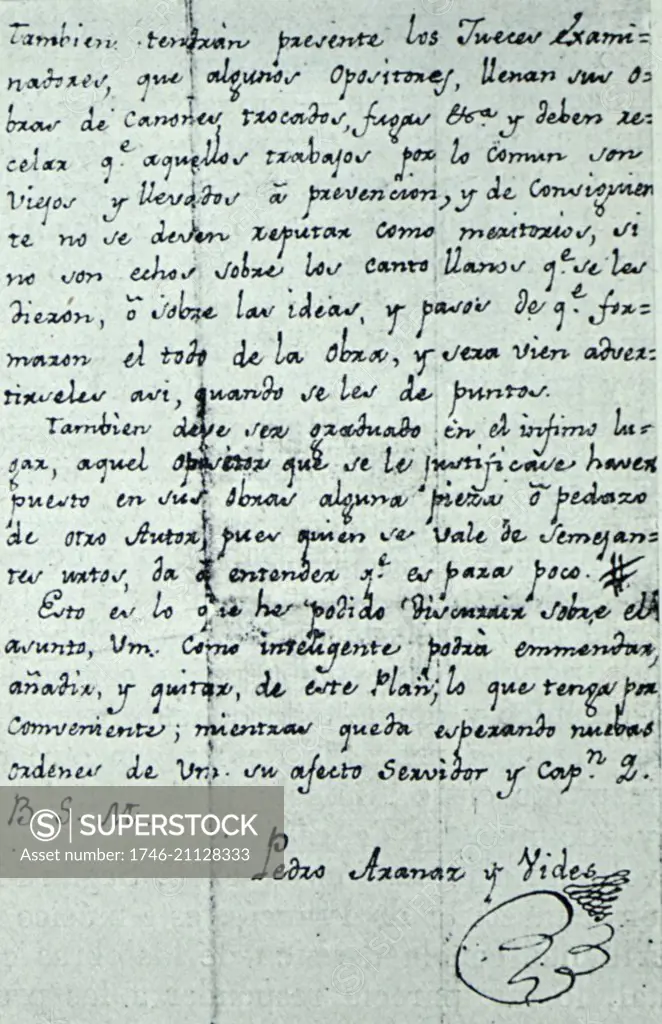 Tambien tendràn presente los Jueces Exami=
nadores, que algunos Opositores, llenan sus o=
bras de Canones, trocados, fugas &c.a y deben re=
celar q.e aquellos trabajos por lo comun son
viejos y llevados â prevencion, y de Consiguien
te no se deven reputar como meritorios, si
no son echos sobre los canto llanos q.e se les
dieron, ô sobre las ideas, y pasos de q.e for=
maron el todo de la Obra, y sera vien adver=
tirseles asi, quando se les de puntos.
Tambien deve ser graduado en el infimo lu=
gar, aquel Opositor que se le justificase haver
puesto en sus Obras alguna pieza ô pedazo
de otro Autor, pues quien se vale de semejan=
tes urtos, da â entender q.e es para poco. #
Esto es lo que he podido discurrir sobre el
asunto, Vm. Como inteligente podrà emmendar,
añadir, y quitar, de este Plan; lo que tenga por
Conveniente; mientras queda esperando nuebas
ordenes de Vm. su afecto Servidor y Cap.n Q.
B. S. M.
Pedro Aranaz y Vides
SUPERSTOCK
Asset number: 1746-21128333